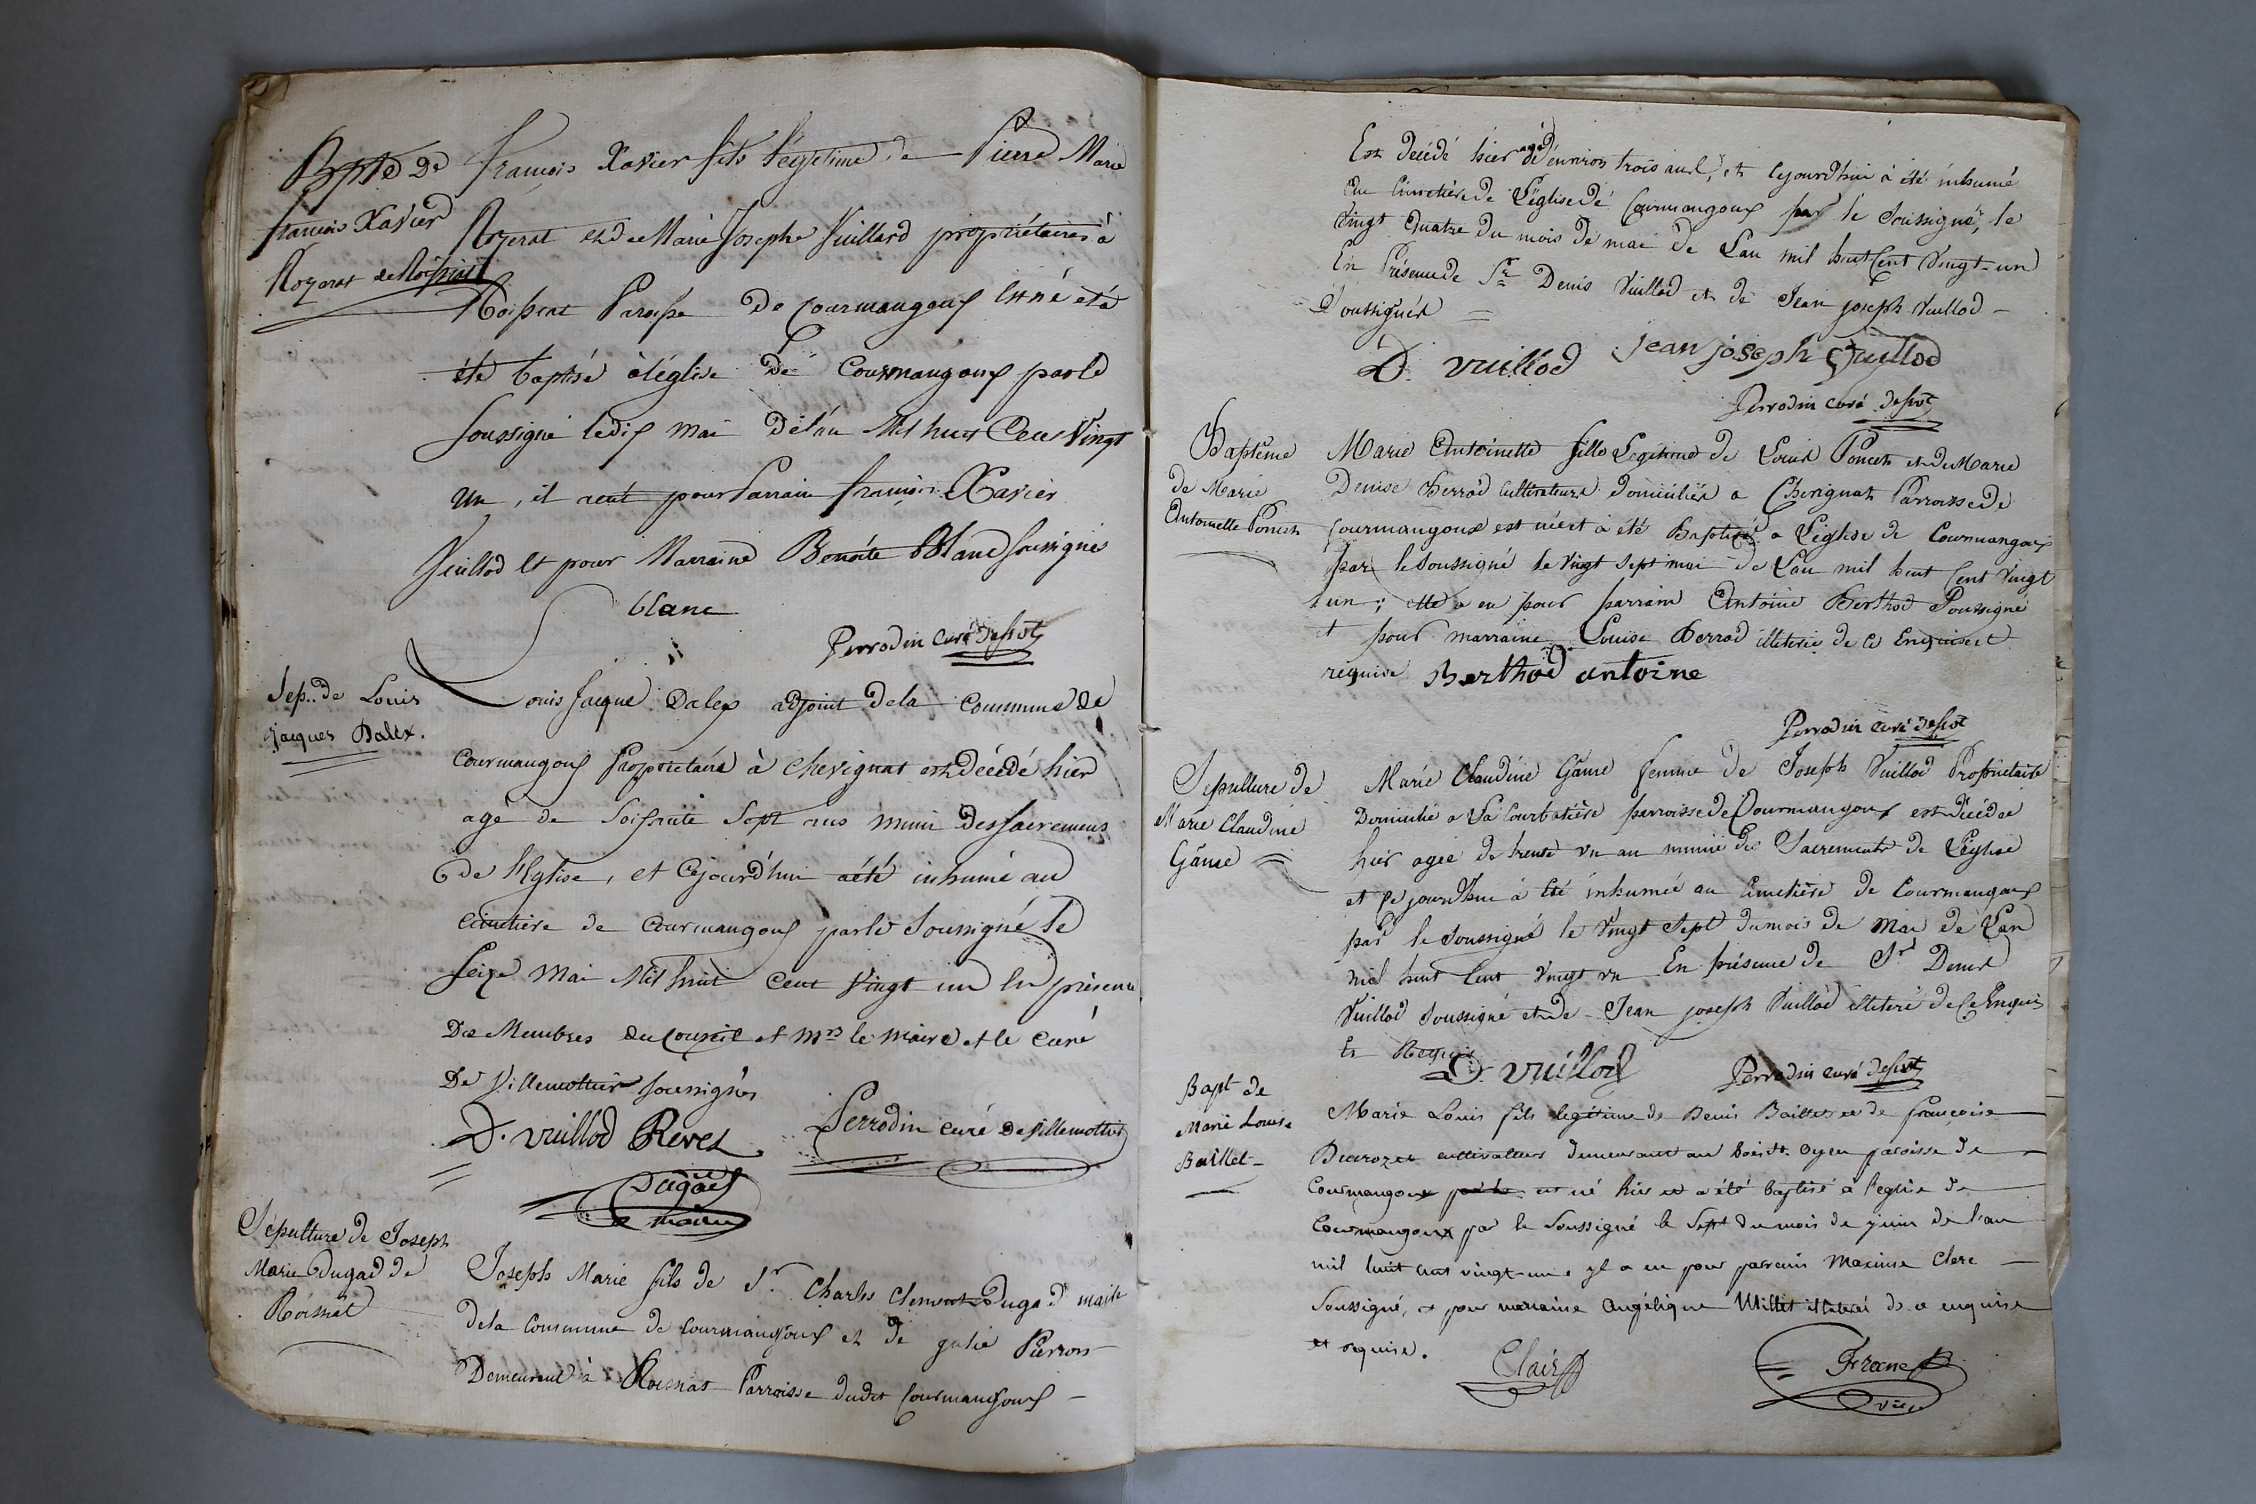 Bpte De
francois Xavier
Rozerat de Roissiat
françois Xavier fils légitime de Pierre Marie
Rozerat et de Marie Josephe Vuillard propriétaires à
Roissiat Paroisse De Courmangoux Est né et à
été baptisé à l'église De Courmangoux par le
soussigné le dix mai de l'an Mil huit Cent Vingt
un, il a eut pour Parrain françois Xavier
Vuillod Et pour Marraine Benoite Blanc soussignés
blanc
Perrodin curé desservt
Sep.. de Louis
Jacques Dalex.
Louis Jacque Dalex adjoint dela commune de
Courmangoux Propriétaire à Chevignat est décédé hier
agé de Soissante Sept ans muni des sacremens
de l'Eglise, et cejourd'hui a été inhumé au
cimetiere de Courmangoux par le soussigné le
seize mai Mil huit cent vingt un En présence
Des Membres du Conseil et Mrs le maire et le curé
De Villemottier soussignés
D. Vuillod Reves
Perrodin curé De Villemottier
Dugad
maire
Sépulture de Joseph
Marie Dugad de
Roissiat
Joseph Marie fils de Sr. Charles Clement Dugad maire
dela Commune de Courmangoux et de julie Pierron
Demeurant à Roissiat Parroisse dudit Courmangoux
Est decédé hier agé d'environ trois ans, et cejourd'hui à été inhumé
au Cimetière de l'église de Courmangoux par le soussigné, le
Vingt quatre du mois de mai de l'an mil huit cent vingt-un
En Présence de Sr Denis Vuillod et de Jean joseph Vuillod
soussignés
D. Vuillod jean joseph Vuillod
Perrodin curé desservt
Baptême
de Marie
Antoinette Poncet
Marie Antoinette fille Légitime de Louis Poncet et de Marie
Denise Berrod cultivateurs domiciliés a Chevignat Parroisse de
Courmangoux est né et à été Baptisé a l'église de Courmangoux
par le soussigné le vingt sept mai de l'an mil huit Cent Vingt
un; elle a eu pour parrain Antoine Berthod Soussigné
et pour marraine Louise Berrod illeterée de ce Enquise et
requise Berthod antoine
Perrodin curé desservt
Sepulture de
Marie Claudine
Gânse
Marie Claudine Gânse femme de Joseph Vuillod Propriétaire
Domicilié a La Courbatière parroisse de Courmangoux est décédée
hier agée de trente un an munie des Sacrements de l'église
et ce jourd'hui à été inhumée au Cimetière de Courmangoux
par le soussigné le Vingt Sept du mois de mai de L'an
mil huit Cent Vingt un En présence de Sr Denis
Vuillod soussigné et de Jean joseph Vuillod illeteré de ce Enquis
Et Requis
D. Vuillod
Perrodin curé desservt
Bapt de
Marie Louis
Baillet
Marie Louis fils légitime de Denis Baillet et de françoise
cultivateurs demeurant au paroisse de
Courmangoux par le est né hier et a été baptisé à l'eglise de
Courmangoux par le soussigné le Sept du mois de juin de l'an
mil huit cent vingt-un. yl a eu pour parrain Maxime Clerc
soussigné, et pour marraine Angélique Millet illeteré de ce enquise
et requise.
Clair
Franc
Vic